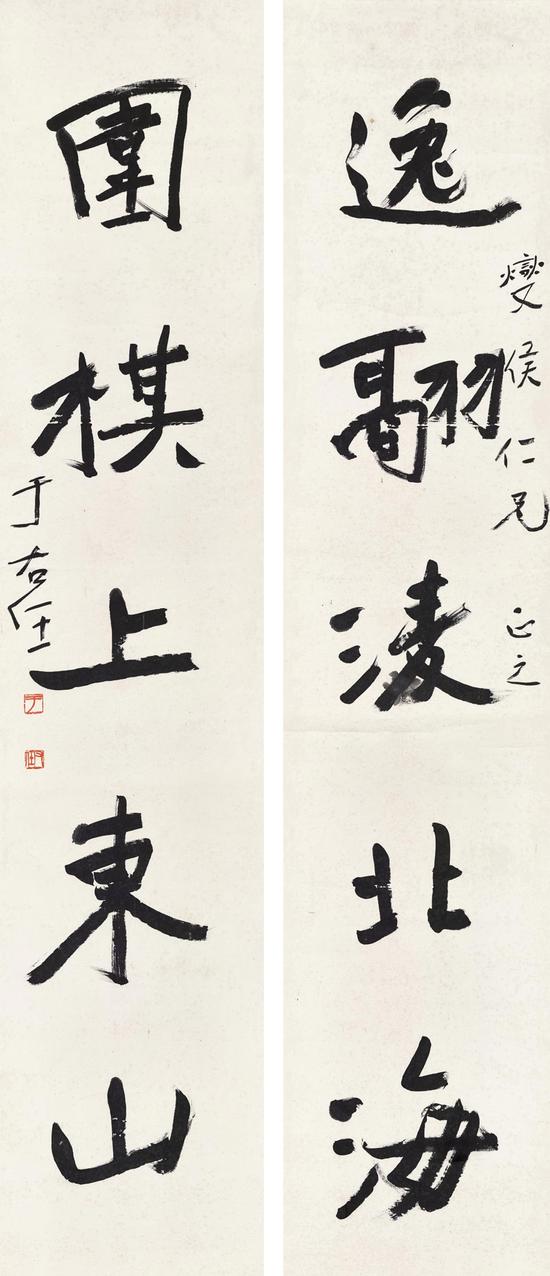 逸翮凌北海
燮侯仁兄 正之
圍棋上東山
于右任